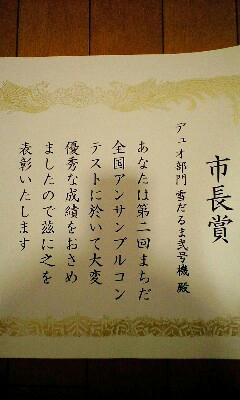 市長賞
デュオ部門 雪だるま弐号機 殿
あなたは第二回まちだ
全国アンサンブルコン
テストに於いて大変
優秀な成績をおさめ
ましたので茲に之を
表彰いたします